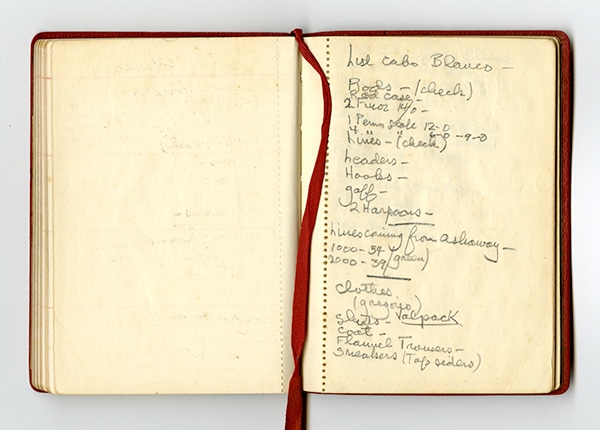 List Cabo Blanco —
Rods — (check)
Rod case —
2 Finor 14/0 —
1 Penn 12-0
4 " " 6-0 - 9-0
Lines — (check)
Leaders —
Hooks —
gaff —
2 Harpoons —
Lines coming from Ashaway —
1000 - 54
2000 - 39 (green)
Clothes
(gregorio)
Shirts - Valpack
Coat —
Flannel Trousers —
Sneakers (Top siders)